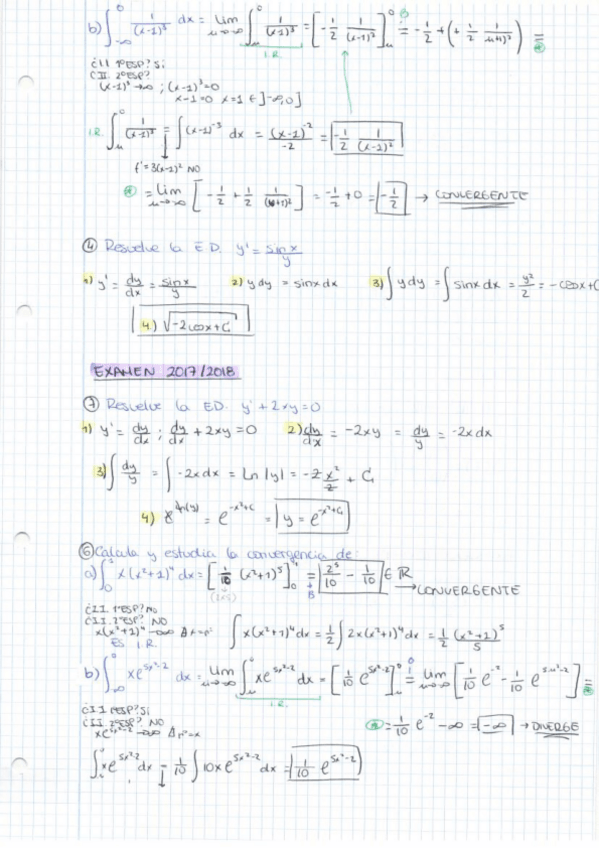 b) ∫_{-∞}^{0} 1/(x-1)³ dx = lim_{u→-∞} ∫_{u}^{0} 1/(x-1)³ = [-1/2 1/(x-1)²]_{u}^{0} = -1/2 + (+1/2 1/(u-1)²) =
B
I.R.
¿II 1ªESP? Sí
¿II. 2ªESP?
(x-1)³ →∞ ; (x-1)³=0
x-1=0 x=1 ∈ ]-∞,0]
I.R. ∫_{u}^{0} 1/(x-1)³ = ∫(x-1)⁻³ dx = (x-1)⁻²/-2 = -1/2 1/(x-1)²
f'=3(x-1)² NO
= lim_{u→-∞} [-1/2 + 1/2 1/(u-1)²] = -1/2 + 0 = -1/2 → CONVERGENTE
④ Resuelve la E.D. y' = sinx/y
1) y' = dy/dx = sinx/y 2) ydy = sinxdx 3) ∫ydy = ∫sinxdx = y²/2 = -cosx+C
4.) √-2cosx+C
EXAMEN 2017/2018
⑦ Resuelve la ED. y' + 2xy=0
1) y' = dy/dx ; dy/dx + 2xy = 0 2) dy/dx = -2xy = dy/y = -2xdx
3) ∫dy/y = ∫-2xdx = Ln|y| = -2 x²/2 + C
4) e^{ln(y)} = e^{-x²+C} = y = e^{-x²+C}
⑥ Calcula y estudia la convergencia de
a) ∫ x(x²+1)⁴ dx = [1/10 (x²+1)⁵] = 2⁵/10 - 1/10 ∈ ℝ
B → CONVERGENTE
¿II. 1ªESP? No
¿II. 2ªESP? NO
x(x²+1)⁴
∫x(x²+1)⁴dx = 1/2 ∫2x(x²+1)⁴dx = 1/2 (x²+1)⁵/5
ES I.R
b) ∫_{-∞}^{0} xe^{5x²-2} dx = lim_{u→-∞} ∫_{u}^{0} xe^{5x²-2} dx = [1/10 e^{5x²-2}]_{u}^{0} = lim_{u→-∞} [1/10 e⁻² - 1/10 e^{5u²-2}] =
I.R.
¿II 1ªESP? Sí
¿II 2ªESP? NO
xe^{5x²-2}
= 1/10 e⁻² -∞ = -∞ → DIVERGE
∫xe^{5x²-2} dx = 1/10 ∫10xe^{5x²-2} dx = 1/10 e^{5x²-2}